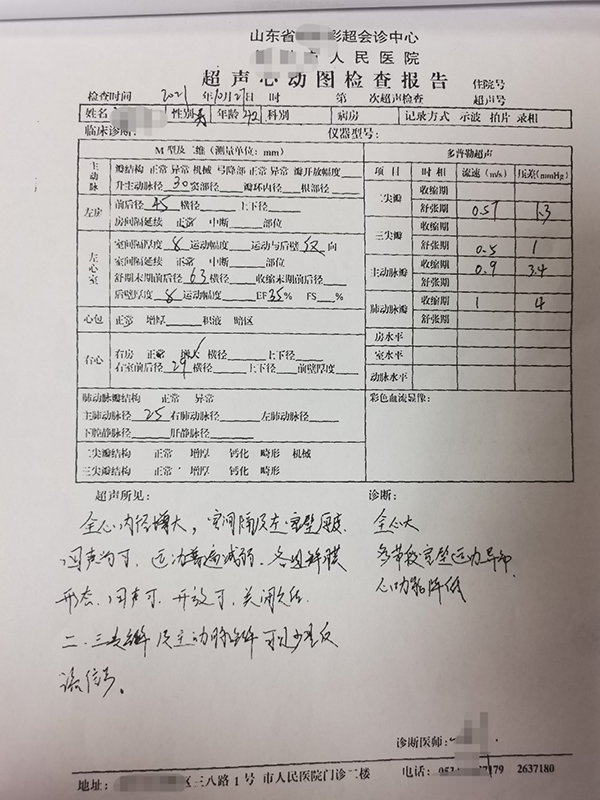 山东省 彩超会诊中心
人民医院
超声心动图检查报告
住院号
检查时间 2021年10月27日 时 第 次超声检查 超声号
姓名 性别 男 年龄 42 科别 病房 记录方式 示波 拍片 录相
临床诊断: 仪器型号:
M 型及二维 (测量单位: mm)
主动脉
瓣结构 正常 异常 机械 弓降部 正常 异常 瓣开放幅度
升主动脉径 30 窦部径 瓣环内径 根部径
左房
前后径 45 横径 上下径
房间隔延续 正常 中断 部位
左心室
室间隔厚度 8 运动幅度 运动与后壁 反 向
室间隔延续 正常 中断 部位
舒期末期前后径 63 横径 收缩末期前后径
后壁厚度 8 运动幅度 EF 35 % FS %
心包 正常 增厚 积液 暗区
右心
右房 正常 增大 横径 上下径
右室前后径 29 横径 上下径 前壁厚度
肺动脉瓣结构 正常 异常
主肺动脉径 25 右肺动脉径 左肺动脉径
下腔静脉径 肝静脉径
二尖瓣结构 正常 增厚 钙化 畸形 机械
三尖瓣结构 正常 增厚 钙化 畸形
多普勒超声
项目 时相 流速 (m/s) 压差(mmHg)
二尖瓣 收缩期
舒张期 0.57 1.3
三尖瓣 收缩期
舒张期 0.5 1
主动脉瓣 收缩期 0.9 3.4
舒张期
肺动脉瓣 收缩期 1 4
舒张期
房水平
室水平
动脉水平
彩色血流显像:
超声所见:
全心内径增大,室间隔及左室壁厚度
回声尚可,运动普遍减弱,各组瓣膜
形态、回声可,开放可,关闭欠佳.
二、三尖瓣及主动脉瓣可见少量反
流信号。
诊断:
全心大
多节段室壁运动异常
心功能降低
诊断医师:
地址: 区三八路 1 号 市人民医院门诊二楼 电话: 179 2637180